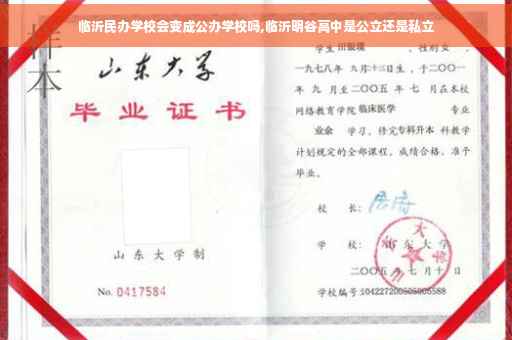 临沂民办学校会变成公办学校吗,临沂明谷高中是公立还是私立
样本
山东大学
毕业证书
山东大学制
No. 0417584
学生
性别女,
一九七八年 九月十三日生,于二〇〇一
年 九 月至二〇〇五 年 七 月在本校
网络教育学院 临床医学 专业
业余 学习,修完专科升本科教学
计划规定的全部课程,成绩合格,准予
毕业。
校 长:
学 校: 山东大学
二〇〇五年七月十日
学校编号: